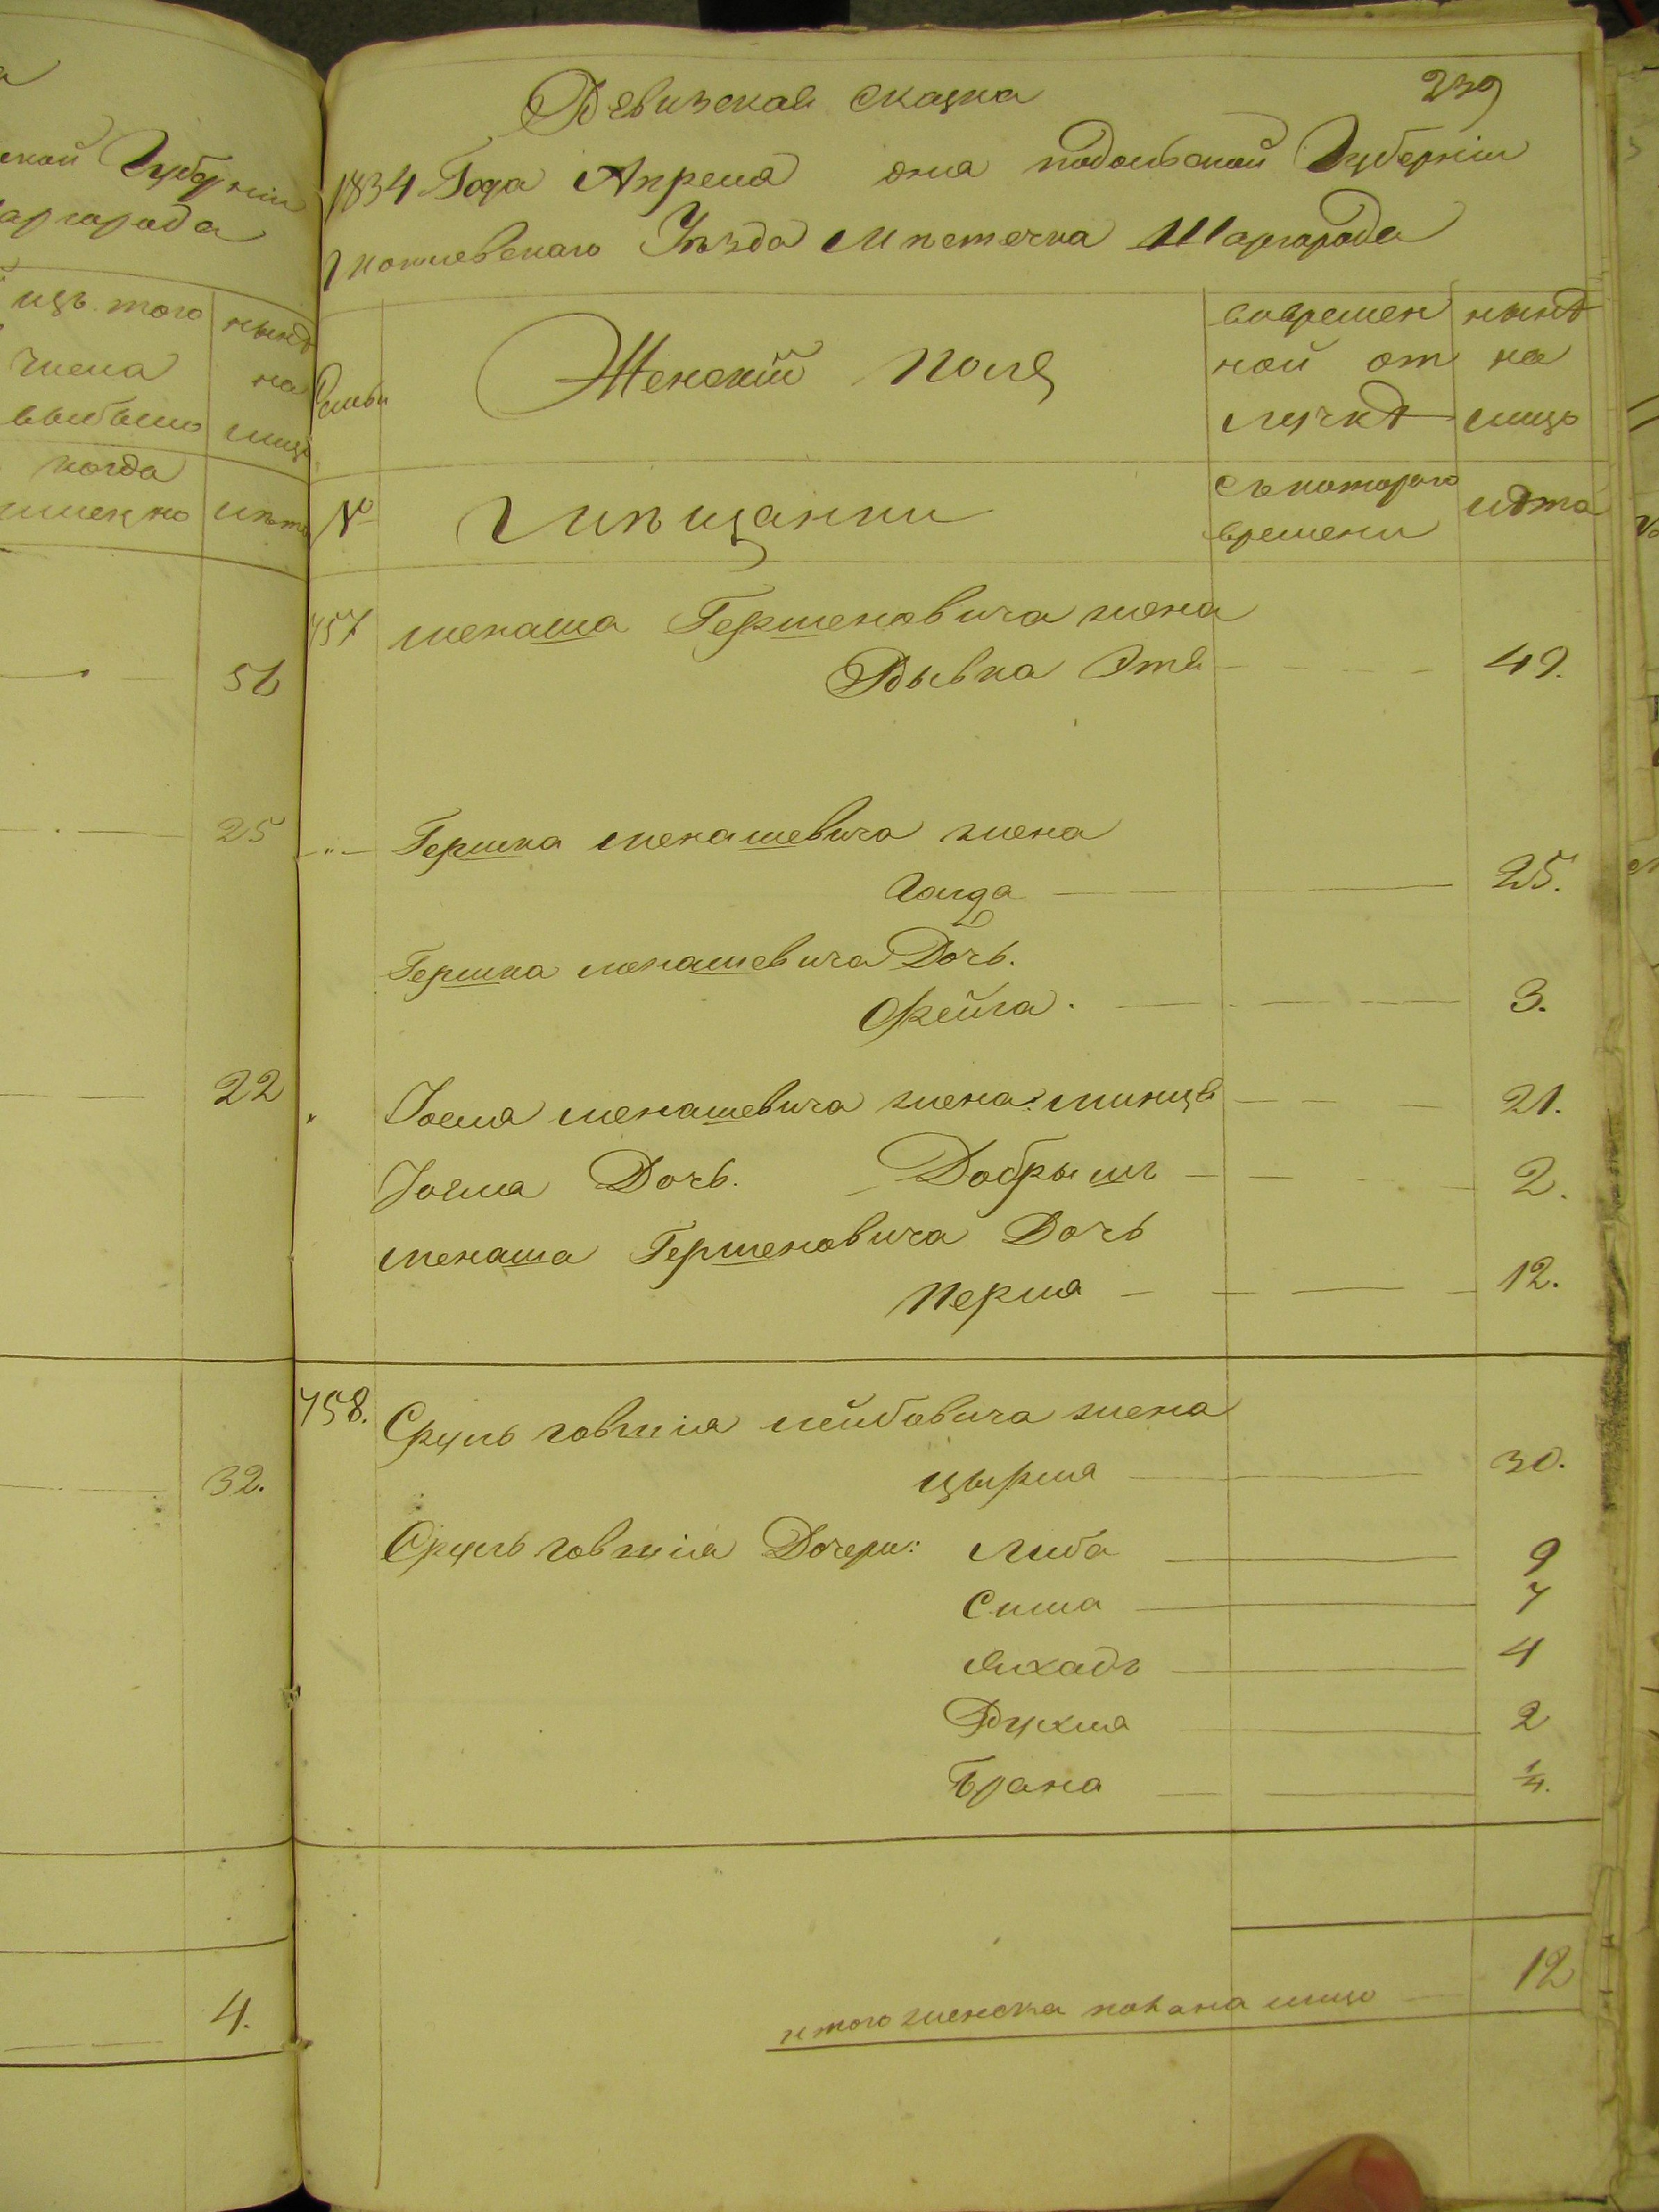 ской Губерніи
аргорода
изъ того
числа
выбыло
нынѣ
на
лицо
когда
лѣта
51
25
22
32.
4.
Ревизская сказка
239
1834 Года Апреля дня подольской Губерніи
Могилевскаго Уѣзда Мѣстечка Шаргорода
Семьи
Женскій полъ
вовремен
ной от
лучкѣ
нынѣ
на
лицо
№
Мѣщанки
съ котораго
времени
лѣта
757 менаша Гершеновича жена
Рывка Этя 49.
Гершка менашевича жена
Голда 25.
Гершка менашевича Дочь.
Фейга. 3.
Іосля менашевича жена: минця 21.
Іосля Дочь. Добрышъ 2.
менаша Гершеновича Дочь
Перля 12.
758. Сруль говшія лейбовича жена
цырля 30.
Сруль говшія Дочери: Либа 9
Сима 7
Рухля 2
Брана 1/4.
итого женска пола на лицо 12